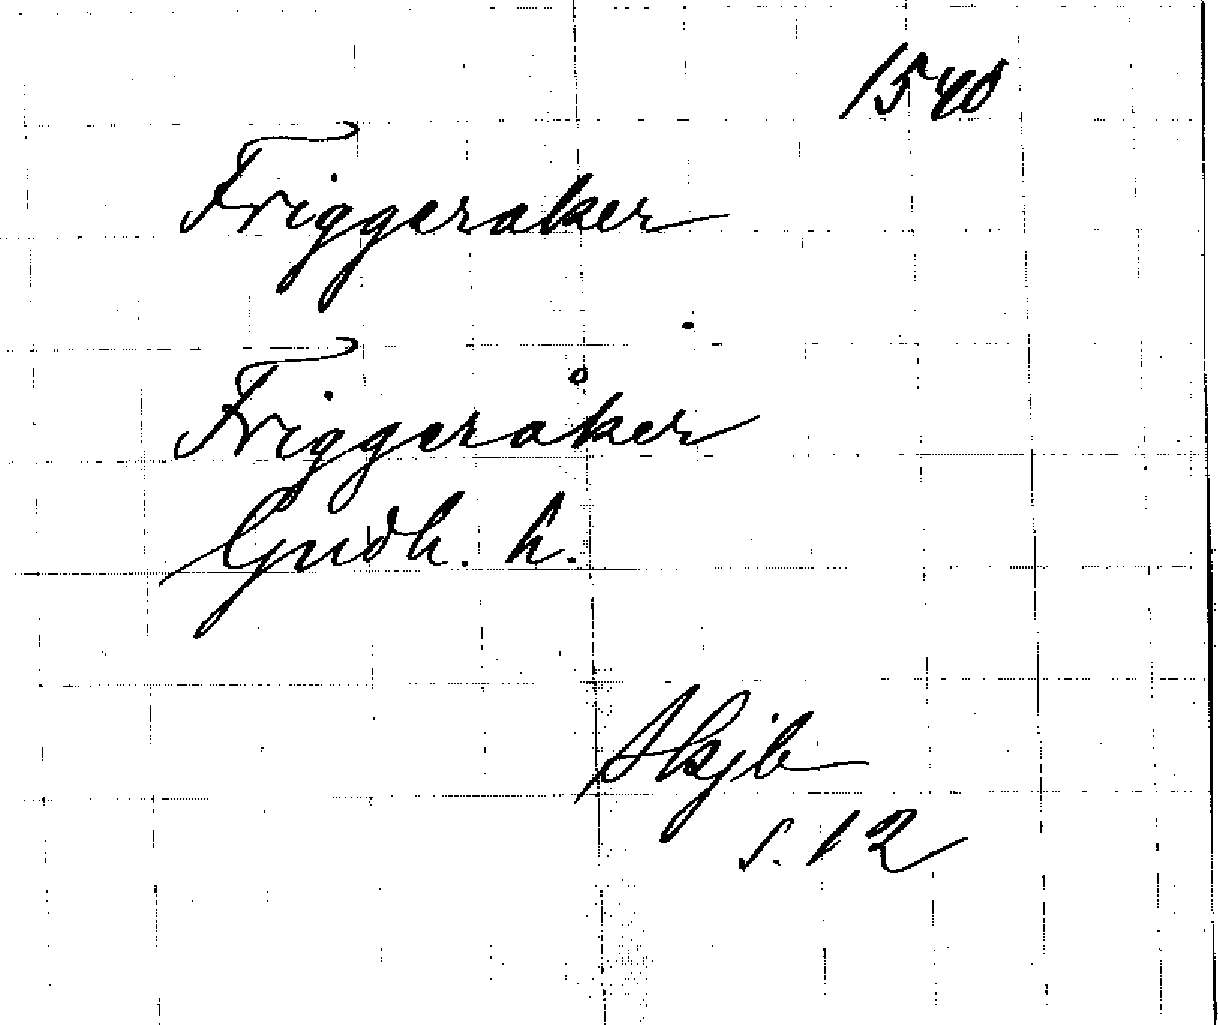 1540
Friggeraker
Friggeråker
Gudh. h.
Skjb
s. 12